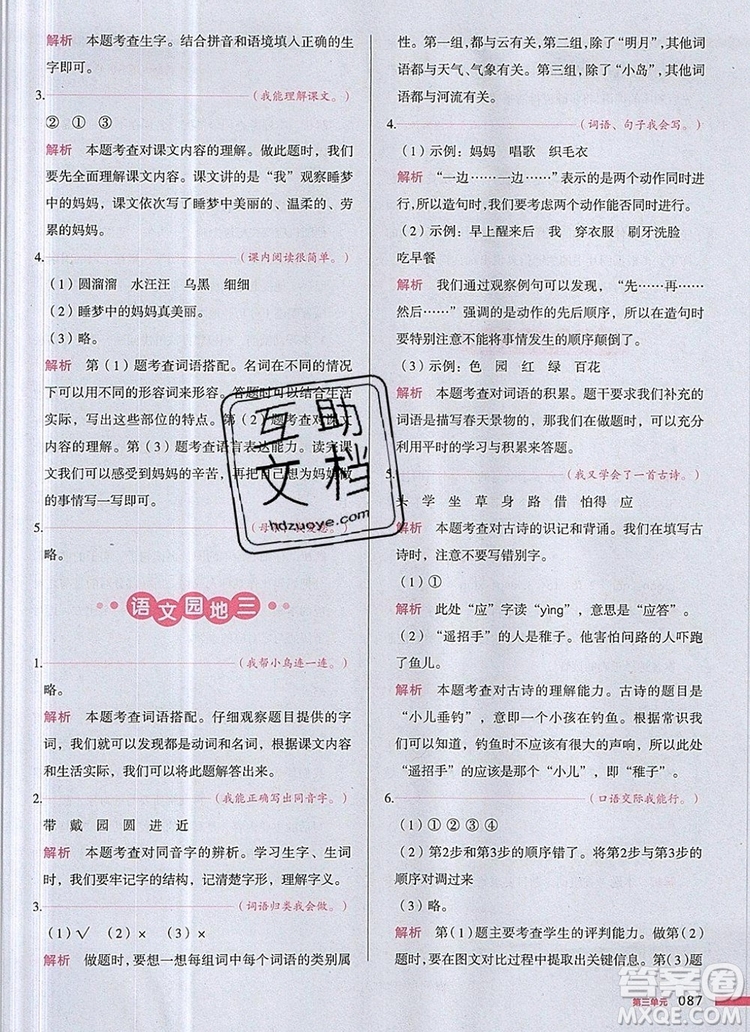 解析 本题考查生字。结合拼音和语境填入正确的生
字即可。
3.（我能理解课文。）
② ① ③
解析 本题考查对课文内容的理解。做此题时，我们
要先全面理解课文。课文讲的是“我”观察睡梦
中的妈妈，课文依次写了睡梦中的美丽的、温柔的、劳
累的妈妈。
4.（课内阅读很简单。）
（1）圆溜溜 水汪汪 乌黑 细细
（2）睡梦中的妈妈真美丽。
（3）略。
解析 第（1）题考查词语搭配。名词在不同的情况
下可以用不同的形容词来形容。答题时可以结合生活
实际，写出这些部位的特点。第（2）题考查对课文
内容的理解。第（3）题考查语言表达能力。读完课
文我们能感受到妈妈的辛苦，再把自己想为妈妈做
的事情写一写即可。
5.
略。
语文园地三
1.（我帮小鸟连一连。）
略。
解析 本题考查词语搭配。仔细观察题目提供的字
词，我们就可以发现都是动词和名词，根据课文内容
和生活实际，我们就可以把这题解答出来。
2.（我能正确写出同音字。）
带 戴 园 圆 进 近
解析 本题考查对同音字的辨析。学习生字、生词
时，我们要牢记字的结构，记清楚字形、字义。
3.（词语归类我会做。）
（1）√ （2）× （3）×
解析 做题时，要想一想每组词中每个词语的类别属
性。第一组，都与云有关。第二组，除了“明月”，其他
词语都与天气、气象有关。第三组，除了“小岛”，其他
词语都与河流有关。
4.（词语、句子我会写。）
（1）示例：妈妈 唱歌 织毛衣
解析 “一边……一边……”表示的是两个动作同时进
行，所以造句时，我们要考虑两个动作能否同时进行。
（2）示例：早上醒来后 我 穿衣服 刷牙洗脸
吃早餐
解析 我们通过观察例句可以发现，“先……再……
然后……”强调的是动作的先后顺序，所以我们造句时
要特别注意不能将事情发生的顺序颠倒了。
（3）示例：色 园 红 绿 百花
解析 本题考查对词语的积累。题干要求我们补充的
词语是描写春天景物的，那么我们在做题时，要充分
利用平时的学习与积累来答题。
5.（我又学会了一首古诗。）
头 学 坐 草 身 路 借 怕得 应
解析 本题考查对古诗的识记和背诵。我们在填写古
诗时，注意不要写错别字。
（1）①
解析 此处“应”字读“yìng”，意思是“应答”。
（2）“遥招手”的人是稚子。他害怕问路的人吓跑
了鱼儿。
解析 本题考查对古诗的理解能力。古诗的题目是
“小儿垂钓”，意思是一个小孩在钓鱼。根据常识我
们可以知道，钓鱼时不能发出很大的声响，所以
“遥招手”的应该是这个“小儿”，即“稚子”。
6.（口语交际我能行。）
（1）①②③④
（2）第2步和第3步的顺序错了。将第2步与第3步的
顺序调过来
（3）略。
解析 第（1）题主要考查学生的评判能力。做第（2）
题时，要在图文对比过程中提取出关键信息。第（3）题
第三单元 087
互助
文档
hdzuoye.com
答案圈
MXQE.COM